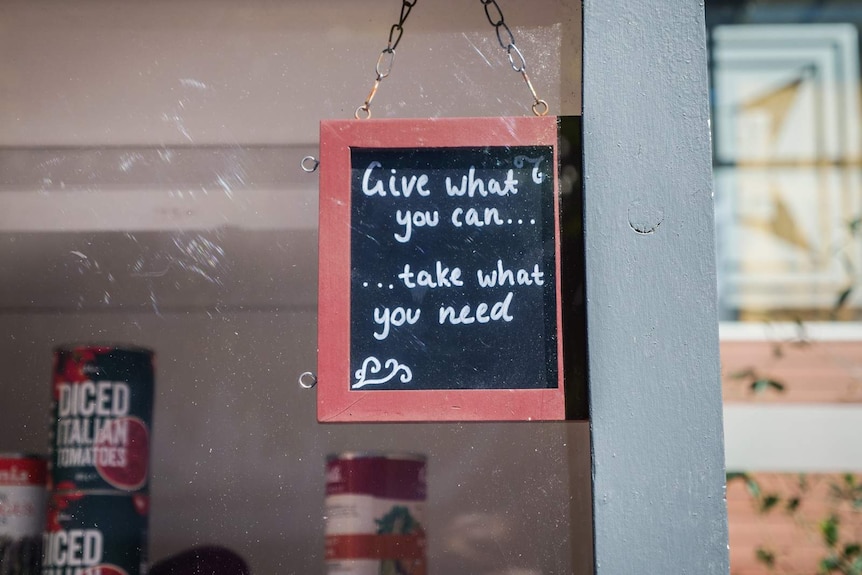 Give what
you can...
...take what
you need
DICED
ITALIAN
TOMATOES
DICED